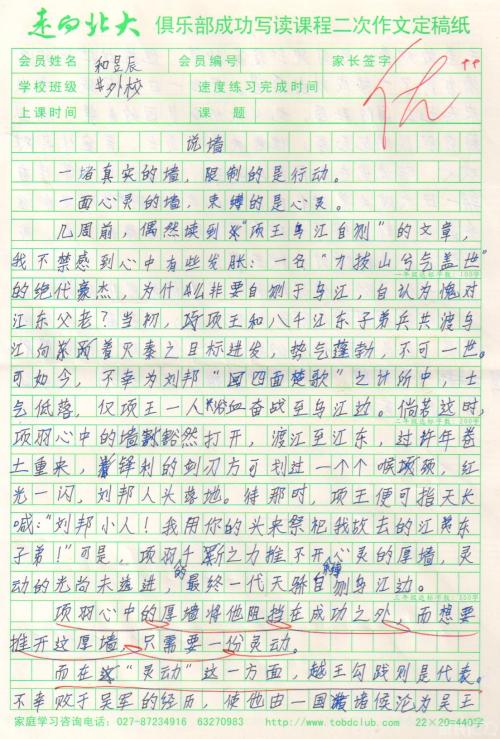 走向北大 俱乐部成功写读课程二次作文定稿纸
会员姓名 和昱辰 会员编号 家长签字
学校班级 外校 速度练习完成时间
上课时间 课题
优
说墙
一堵真实的墙，限制的是行动。
一面心灵的墙，束缚的是心灵。
几周前，偶然读到“项王乌江自刎”的文章，
我不禁感到心中有些发胀：一名“力拔山兮气盖世”
一年级达标字数：100字
的绝代豪杰，为什么非要自刎于乌江，自认为愧对
江东父老？当初，项王和八千江东子弟兵共渡乌
江向着灭秦之目标进发，势气蓬勃，不可一世。
可如今，不幸为刘邦“四面楚歌”之计所中，士
气低落，仅项王一人浴血奋战至乌江边。倘若这时，
二年级达标字数：200字
项羽心中的墙豁然打开，渡江至江东，过许年卷
土重来，锋利的剑刃方可划过一个个喉颈，红
光一闪，刘邦人头落地。待那时，项王便可指天长
喊：“刘邦小人！我用你的头来祭祀我故去的江东
子弟！”可是，项羽千斤之力推不开心灵的厚墙，灵
动的光尚未透进，最终一代天骄自刎乌江边。
三年级达标字数：300字
项羽心中的厚墙将他阻挡在成功之外，而想要
推开这厚墙，只需要一份灵动。
而在这“灵动”这一方面，越王勾践则是代表。
不幸败于吴军的经历，使他由一国诸侯沦为吴王
家庭学习咨询电话：027-87234916 63270983 http://www.tobdclub.com 22×20=440字